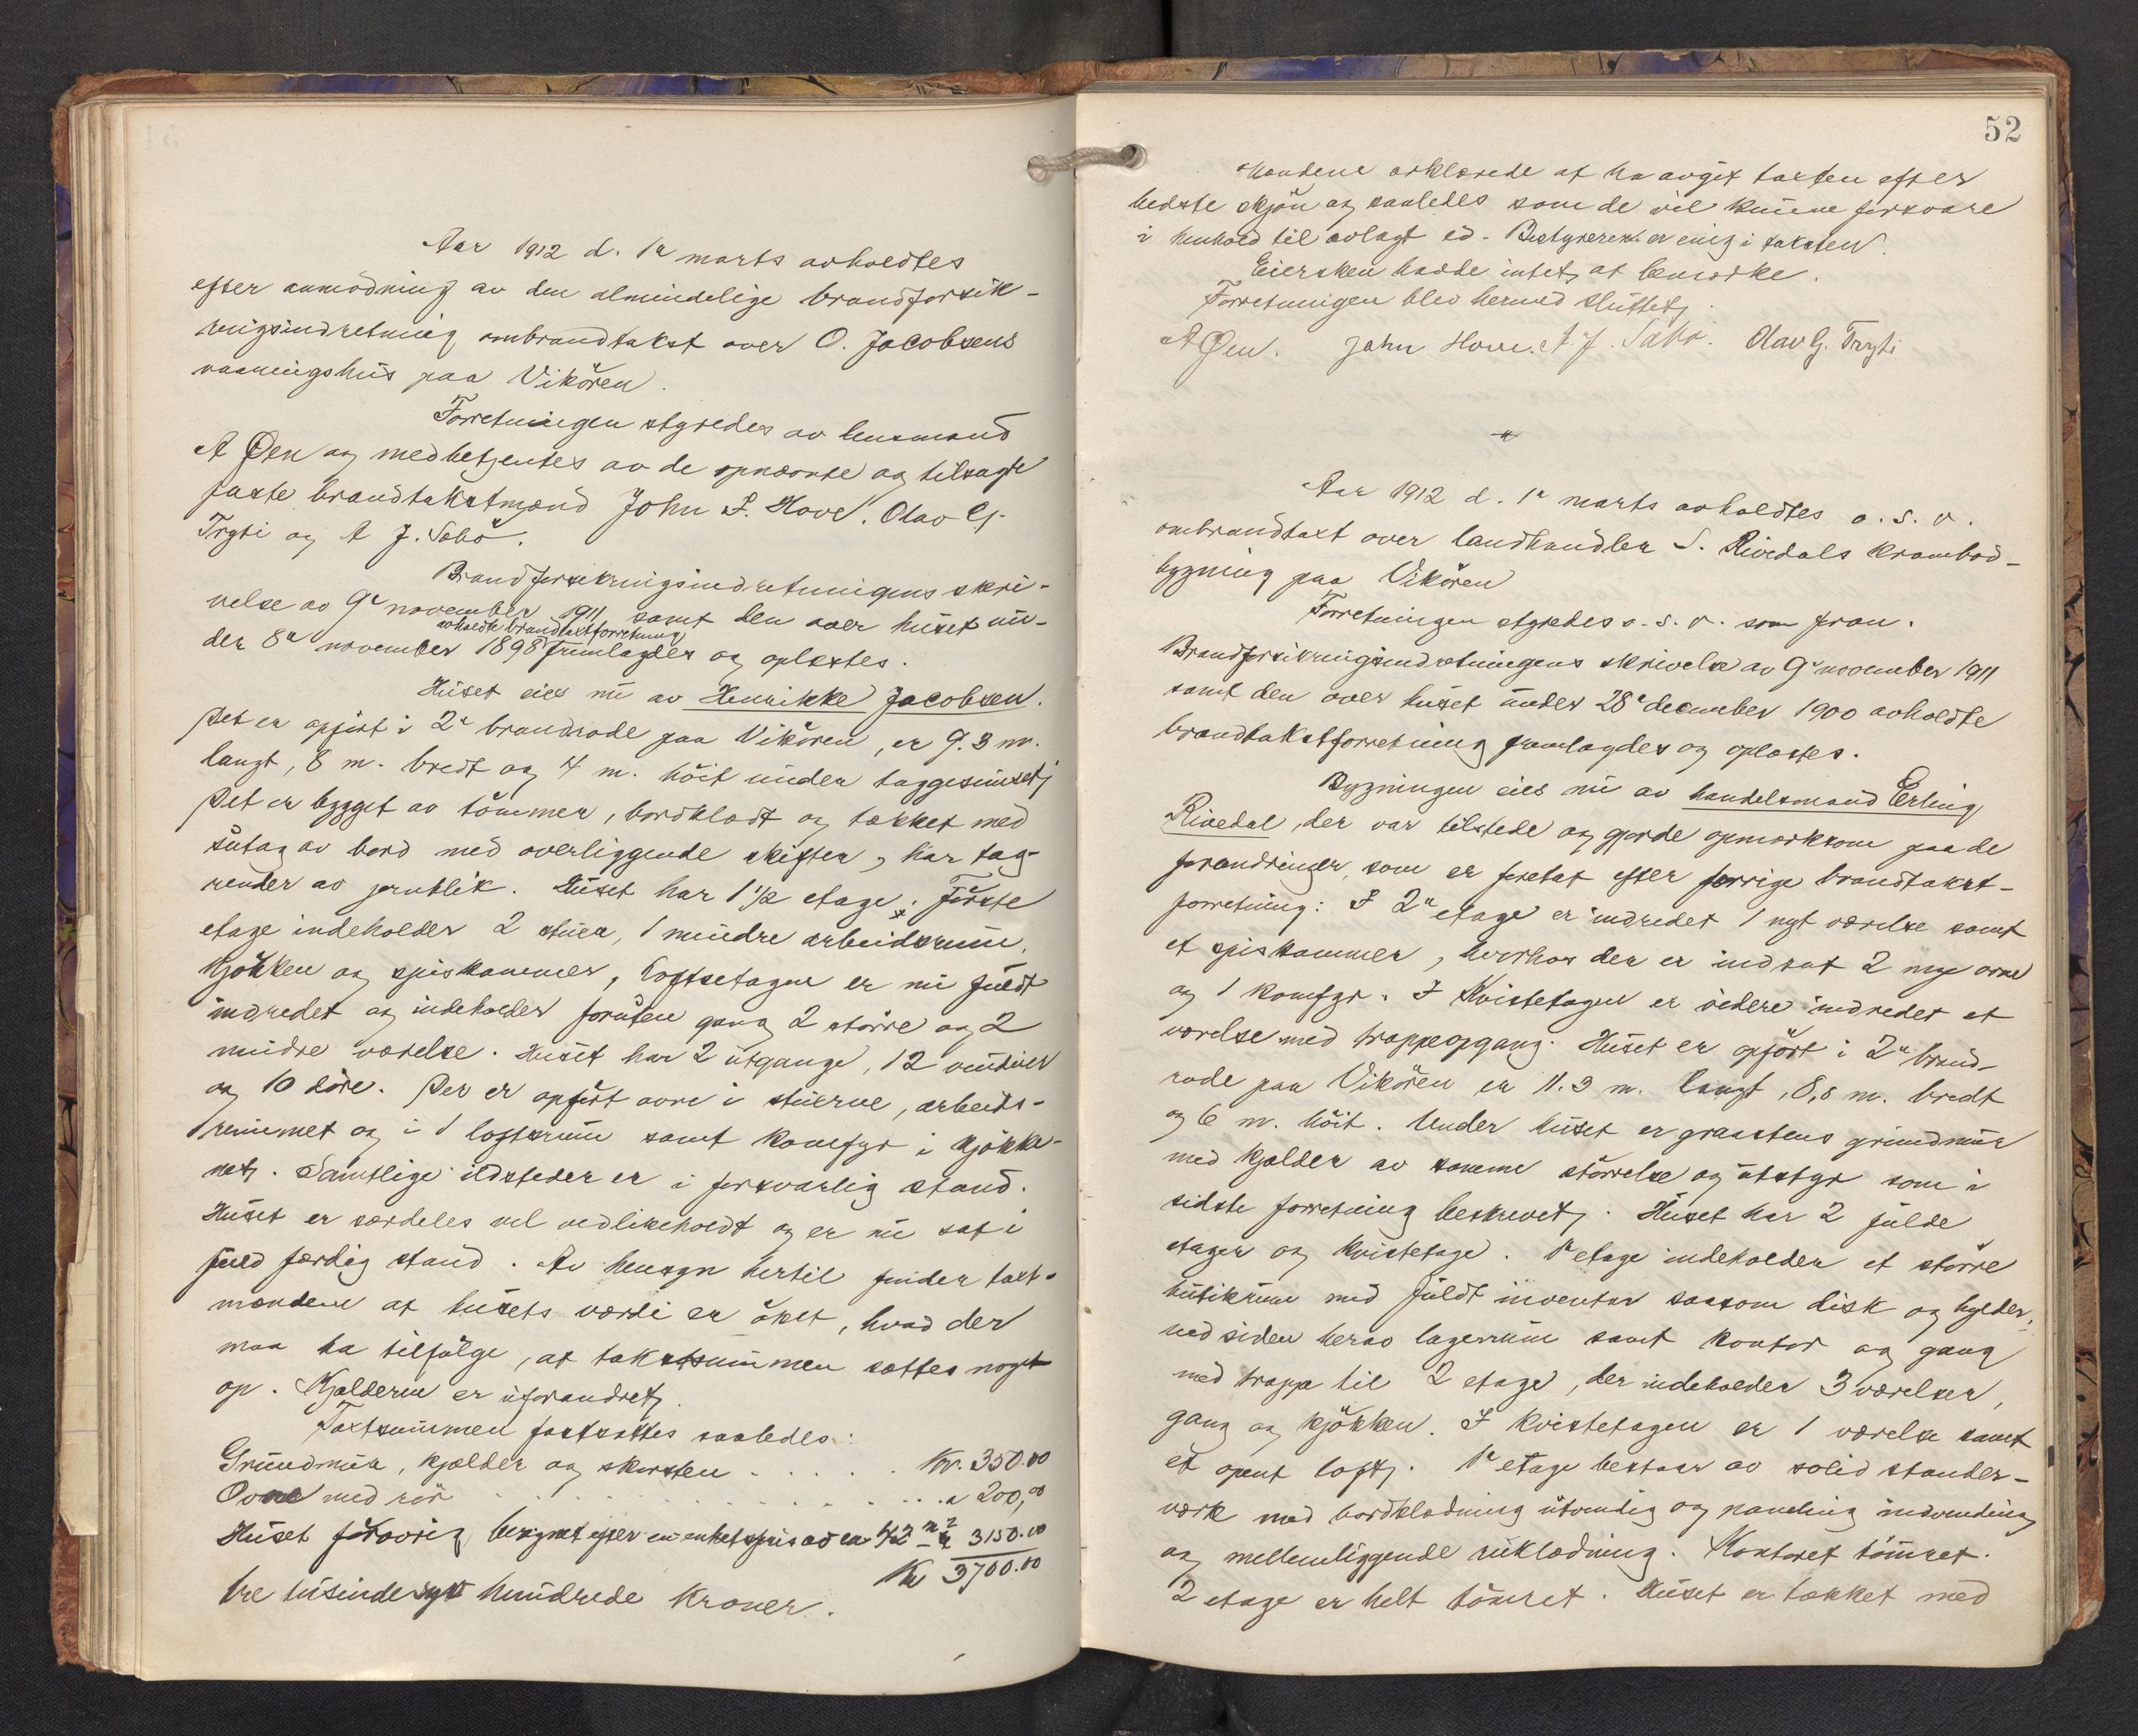 Aar 1912 d. 1ᵉ marts avholdtes
efter anmodning av den almindelige brandforsik-
ringsindretning ombrandtakst over O. Jacobsens
vaaningshus paa Vikøren.
Forretningen styredes av lensmand
A Øen og medbetjentes av de opnævnte og tilsagte
faste brandtakstmænd John S. Hove. Olav G.
Tryti og A J. Sabø.
Brandforsikringsindretningens skri-
velse av 9ᵉ november 1911 samt den over huset un-
avholdte brandtaxtforretning
der 8ᵈᵉ november 1898 fremlagdes og oplæstes.
Huset eies nu av Henrikke Jacobsen.
Det er opført i 2ᵉ brandrode paa Vikøren, er 9.3 m.
langt, 8 m. bredt og 4 m. høit under taggesimset;
Det er bygget av tømmer, bordklædt og tækket med
sutag av bord med overliggende skifter, har tag-
render av jernblik. Huset har 1 1/2 etage. Første
etage indeholder 2 stuer, 1 mindre arbeidsrum,
kjøkken og spiskammer, Loftsetagen er nu fuldt
indredet og indeholder foruten gang 2 større og 2
mindre værelse. Huset har 2 utgange, 12 vinduer
og 10 døre. Der er opført ovne i stuerne, arbeids-
rummet og i 1 loftsrum samt komfyr i kjøkke-
net. Samtlige ildsteder er i forsvarlig stand.
Huset er særdeles vel vedlikeholdt og er nu sat i
fuld færdig stand. Av hensyn hertil finder taxt-
mændene at husets værdi er øket, hvad der
maa ha tilfølge, at takstsummen sættes noget
op. Kjelderen er uforandret.
Taxtsummen fastsættes saaledes:
Grundmur, kjælder og skorsten . . . . . Kr. 350.00
Ovne med rør . . . . . . . . . . " 200,00
Huset forøvrig beregnet efter en enhetspris av ca 42 m² - " 3150.00
Kr 3700.00
tre tusinde syv hundrede kroner.
52
Mændene erklærede at ha avgit taxten efter
bedste skjøn og saaledes som de vil kunne forsvare
i henhold til avlagt ed - Bestyreren er enig i taksten.
Eiersken hadde intet at bemerke.
Forretningen blev hermed sluttet.
A Øen. John Hove. A. J. Sabø. Olav G. Tryti
Aar 1912 d. 1ᵉ marts avholdtes o. s. v.
ombrandtaxt over landhandler S. Rivedals krambod-
bygning paa Vikøren
Forretningen styredes o. s. v. som foran.
Brandforsikringsindretningens skrivelse av 9ᵉ november 1911
samt den over huset under 28ᵉ december 1900 avholdte
brandtakstforretning fremlagdes og oplæstes.
Bygningen eies nu av handelsmand Erling
Rivedal, der var tilstede og gjorde opmerksom paa de
forandringer, som er foretat efter forrige brandtakst-
forretning: I 2ⁿ etage er indredet 1 nyt værelse samt
et spiskammer, hvorhos der er indsat 2 nye ovne
og 1 komfyr. I Kvistetagen er videre indredet et
værelse med trappeopgang. Huset er opført i 2ⁿ brand-
rode paa Vikøren er 11.3 m. langt, 8,8 m. bredt
og 6 m. høit. Under huset er graastens grundmur
med kjælder av samme størrelse og utstyr som i
sidste forretning beskrevet. Huset har 2 fulde
etager og kvistetage. 1ᵉ etage indeholder et større
butikrum med fuldt inventar saasom disk og hylder,
ved siden herav lagerrum samt kontor og gang
med trappe til 2 etage, der indeholder 3 værelser,
gang og kjøkken. I kvistetagen er 1 værelse samt
et apent loft. 1ᵉ etage bestaar av solid stander-
værk med bordklædning utvendig og paneling indvendig
og mellemliggende ruklædning. Kontoret tømret.
2 etage er helt tømret. Huset er tækket med